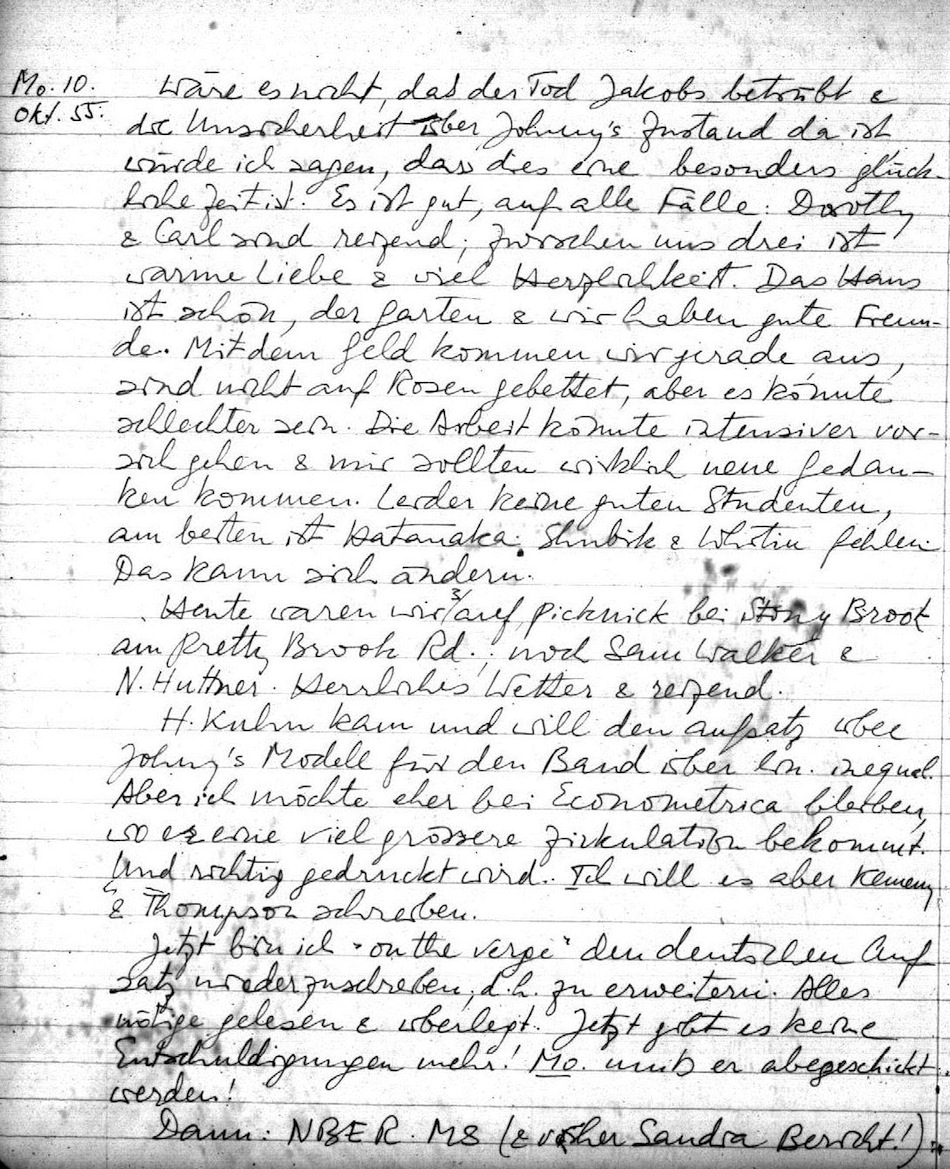 Mo. 10. Wäre es nicht, das der Tod Jakobs betrübt &
Okt. 55. die Unsicherheit über Johnny's Zustand da ist
würde ich sagen, dass dies eine besonders glück-
liche Zeit ist. Es ist gut, auf alle Fälle. Dorothy
& Carl sind reizend; zwischen uns drei ist
warme Liebe & viel Herzlichkeit. Das Haus
ist schön, der Garten & wir haben gute Freun-
de. Mit dem Geld kommen wir gerade aus,
sind nicht auf Rosen gebettet, aber es könnte
schlechter sein. Die Arbeit könnte intensiver vor-
sich gehen & mir sollten wirklich neue Gedan-
ken kommen. Leider keine guten Studenten,
am besten ist Hatanaka. Shubik & Whitin fehlen.
Das kann sich ändern.
Heute waren wir 3 auf Picknick bei Stony Brook
am Pretty Brook Rd.; noch Sam Walker &
N. Huttner. Herrliches Wetter & reizend.
H. Kuhn kam und will den Aufsatz über
Johny's Modell für den Band über lin. inequal.
Aber ich möchte eher bei Econometrica bleiben,
wo er eine viel grössere Zirkulation bekommt.
Und richtig gedruckt wird. Ich will es aber Kemeny
& Thompson schreiben.
Jetzt bin ich "on the verge" den deutschen Auf
satz niederzuschreiben, d.h. zu erweitern. Alles
nötige gelesen & überlegt. Jetzt gibt es keine
Entschuldigungen mehr! Mo. muß er abgeschickt
werden!
Dann: NBER. MS (& vorher Sandia Bericht!)